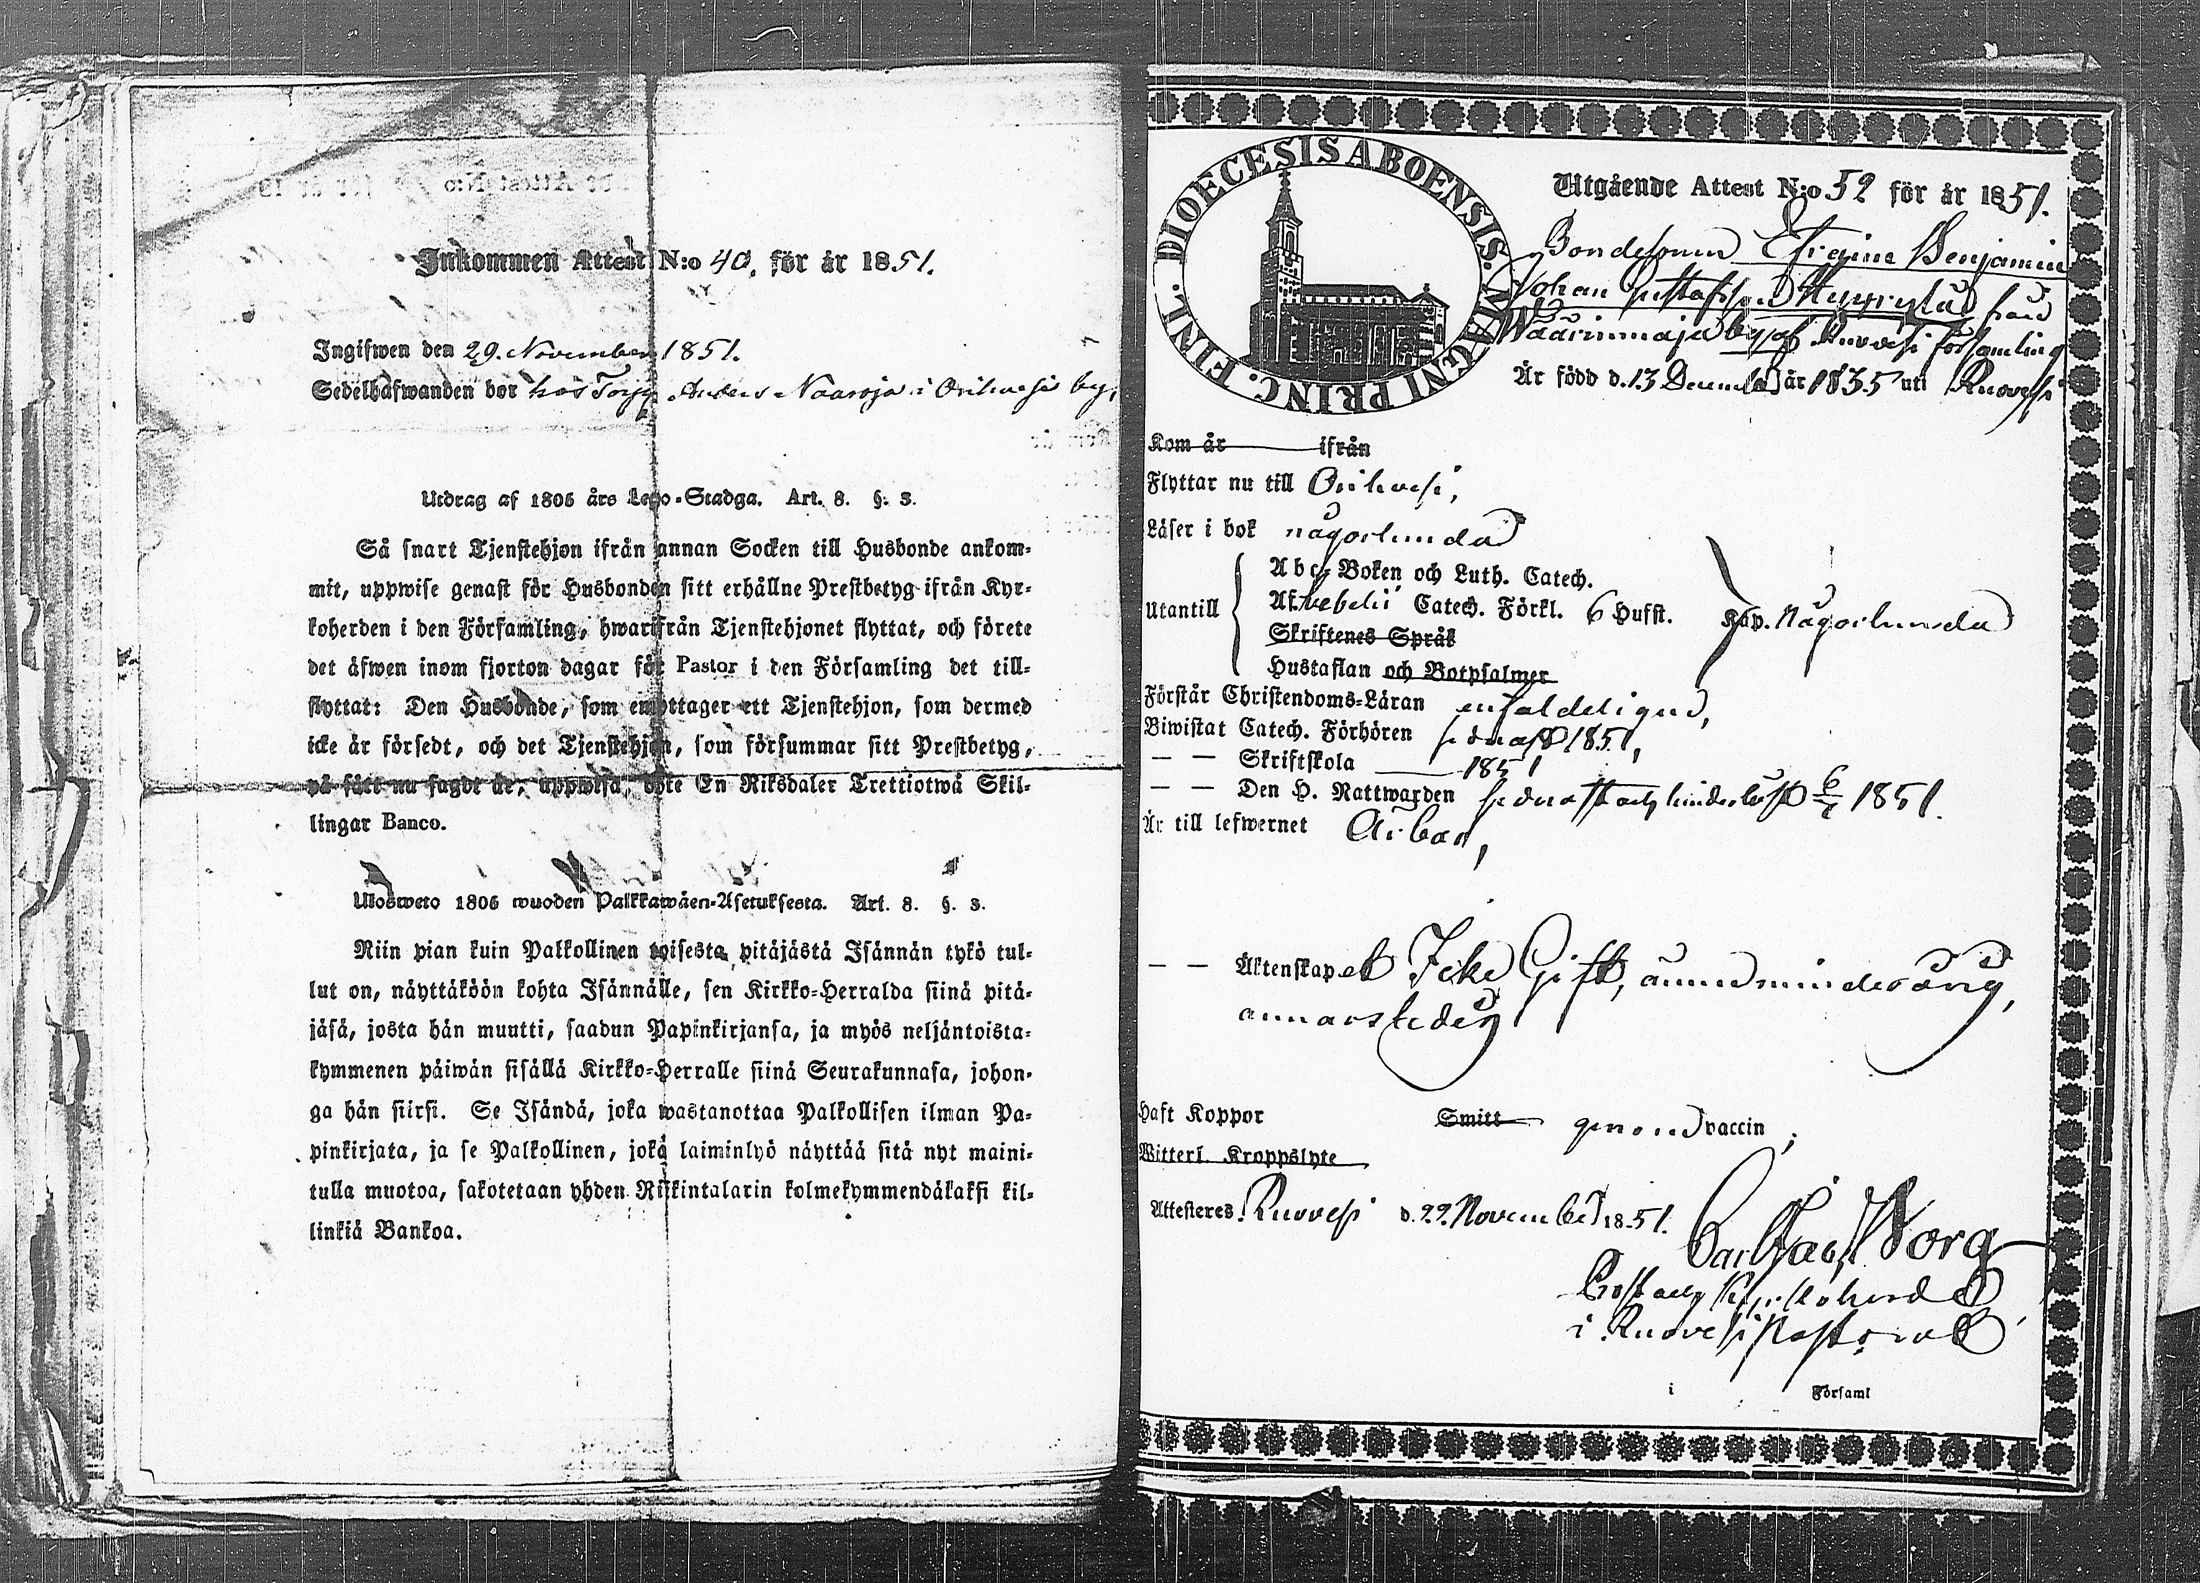 Inkommen Attest N:o 40, för år 1851.
Ingifwen den 29. November 1851.
Sedelhafwanden bor hos Torp. Anders Naaroja i Orihvesi by,
Utdrag af 1806 års Lego-Stadga. Art. 8. §. 3.
Så snart Tjenstehjon ifrån annan Socken till Husbonde ankom-
mit, uppwise genast för Husbonden sitt erhållne Prestbetyg ifrån Kyr-
koherden i den Församling, hwarifrån Tjenstehjonet flyttat, och förete
det äfwen inom fjorton dagar för Pastor i den Församling det till-
flyttat: Den Husbonde, som emottager ett Tjenstehjon, som dermed
icke är försedt, och det Tjenstehjon, som försummar sitt Prestbetyg,
på sätt nu sagdt är, uppwisa, böte En Riksdaler Trettiotwå Skil-
lingar Banco.
Ulosweto 1806 wuoden Palkkawäen-Asetuksesta. Art. 8. §. 3.
Niin pian kuin Palkollinen toisesta pitäjästä Isännän tykö tul-
lut on, näyttäköön kohta Isännälle, sen Kirkko-Herralda siinä pitä-
jäsä, josta hän muutti, saadun Papinkirjansa, ja myös neljäntoista-
kymmenen päiwän sisällä Kirkko-Herralle siinä Seurakunnasa, johon-
ga hän siirsi. Se Isändä, joka wastanottaa Palkollisen ilman Pa-
pinkirjata, ja se Palkollinen, joka laiminlyö näyttää sitä nyt maini-
tulla muotoa, sakotetaan yhden Riksintalarin kolmekymmendäkaksi kil-
linkiä Bankoa.
DIOECESIS ABOENSIS. MAGNI PRINC. FINL.
Utgående Attest N:o 52 för år 1851.
Bondesonen Efraim Benjamin
Johan Gustafsson från
Wäärinmaja by af Ruovesi församling
Är född d. 13 December år 1835 uti Ruovesi
Kom år ifrån
Flyttar nu till Orihvesi,
Läser i bok någorlunda
Abc-Boken och Luth. Catech.
Utantill Af Svebelii Catech. Förkl. 6 Hufst. Kap. Någorlunda
Skriftenes Språk
Hustaflan och Botpsalmer
Förstår Christendoms-Läran enfaldeligen,
Biwistat Catech. Förhören sednast 1851,
— — Skriftskola 1851
— — Den H. Nattwarden sednast och hinderlöst 6/7 1851.
Är till lefwernet Ärbar,
— — Äktenskapet Icke Gift, ännu minderårig,
annars ledig
Haft Koppor Smitt genom vaccin;
Witterl. Kroppslyte
Attesteres Ruovesi d. 22. November 1851.
Carl Jac. Worg
Prost och Kyrkoherde
i Ruovesi Pastorat
i Församl